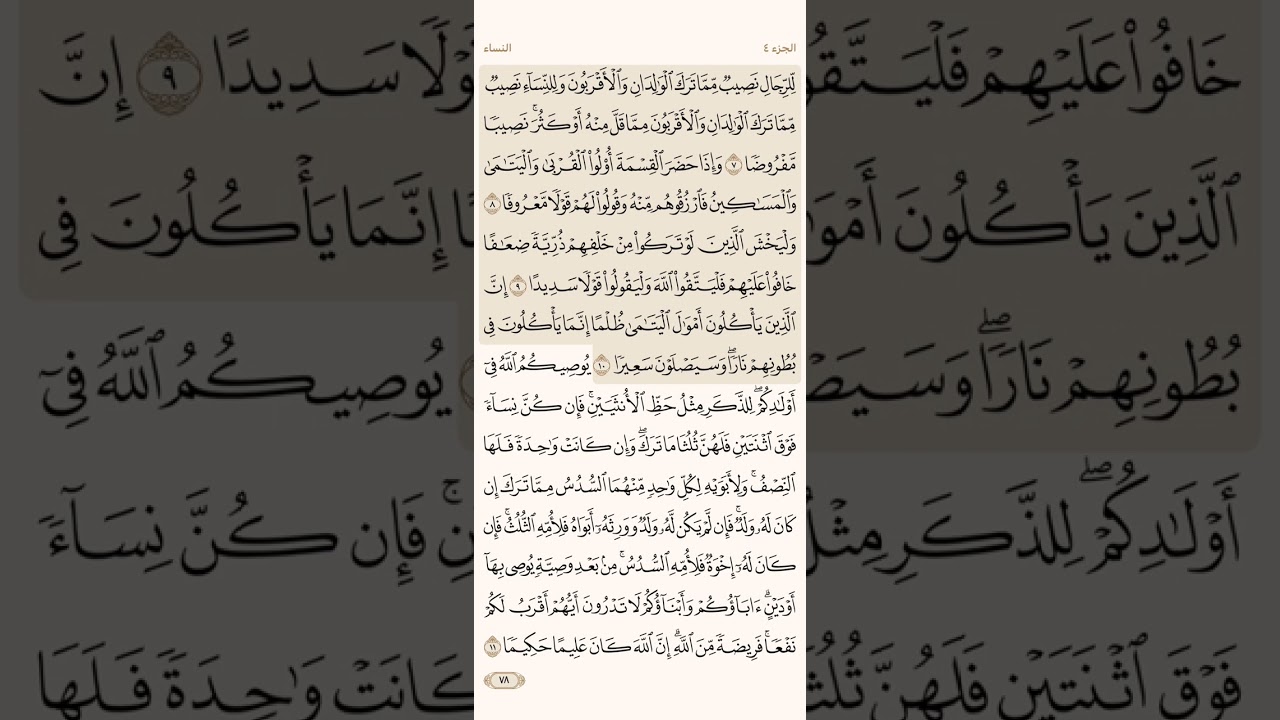 الجزء ٤
النساء
لِّلرِّجَالِ نَصِيبٌ مِّمَّا تَرَكَ ٱلْوَٰلِدَانِ وَٱلْأَقْرَبُونَ وَلِلنِّسَآءِ نَصِيبٌ
مِّمَّا تَرَكَ ٱلْوَٰلِدَانِ وَٱلْأَقْرَبُونَ مِمَّا قَلَّ مِنْهُ أَوْ كَثُرَ ۚ نَصِيبًا
مَّفْرُوضًا ٧ وَإِذَا حَضَرَ ٱلْقِسْمَةَ أُو۟لُوا۟ ٱلْقُرْبَىٰ وَٱلْيَتَٰمَىٰ
وَٱلْمَسَٰكِينُ فَٱرْزُقُوهُم مِّنْهُ وَقُولُوا۟ لَهُمْ قَوْلًا مَّعْرُوفًا ٨
وَلْيَخْشَ ٱلَّذِينَ لَوْ تَرَكُوا۟ مِنْ خَلْفِهِمْ ذُرِّيَّةً ضِعَٰفًا
خَافُوا۟ عَلَيْهِمْ فَلْيَتَّقُوا۟ ٱللَّهَ وَلْيَقُولُوا۟ قَوْلًا سَدِيدًا ٩ إِنَّ
ٱلَّذِينَ يَأْكُلُونَ أَمْوَٰلَ ٱلْيَتَٰمَىٰ ظُلْمًا إِنَّمَا يَأْكُلُونَ فِى
بُطُونِهِمْ نَارًا ۖ وَسَيَصْلَوْنَ سَعِيرًا ١٠ يُوصِيكُمُ ٱللَّهُ فِىٓ
أَوْلَٰدِكُمْ ۖ لِلذَّكَرِ مِثْلُ حَظِّ ٱلْأُنثَيَيْنِ ۚ فَإِن كُنَّ نِسَآءً
فَوْقَ ٱثْنَتَيْنِ فَلَهُنَّ ثُلُثَا مَا تَرَكَ ۖ وَإِن كَانَتْ وَٰحِدَةً فَلَهَا
ٱلنِّصْفُ ۚ وَلِأَبَوَيْهِ لِكُلِّ وَٰحِدٍ مِّنْهُمَا ٱلسُّدُسُ مِمَّا تَرَكَ إِن
كَانَ لَهُۥ وَلَدٌ ۚ فَإِن لَّمْ يَكُن لَّهُۥ وَلَدٌ وَوَرِثَهُۥٓ أَبَوَاهُ فَلِأُمِّهِ ٱلثُّلُثُ ۚ فَإِن
كَانَ لَهُۥٓ إِخْوَةٌ فَلِأُمِّهِ ٱلسُّدُسُ ۚ مِنۢ بَعْدِ وَصِيَّةٍ يُوصِى بِهَآ
أَوْ دَيْنٍ ۗ ءَابَآؤُكُمْ وَأَبْنَآؤُكُمْ لَا تَدْرُونَ أَيُّهُمْ أَقْرَبُ لَكُمْ
نَفْعًا ۚ فَرِيضَةً مِّنَ ٱللَّهِ ۗ إِنَّ ٱللَّهَ كَانَ عَلِيمًا حَكِيمًا ١١
٧٨